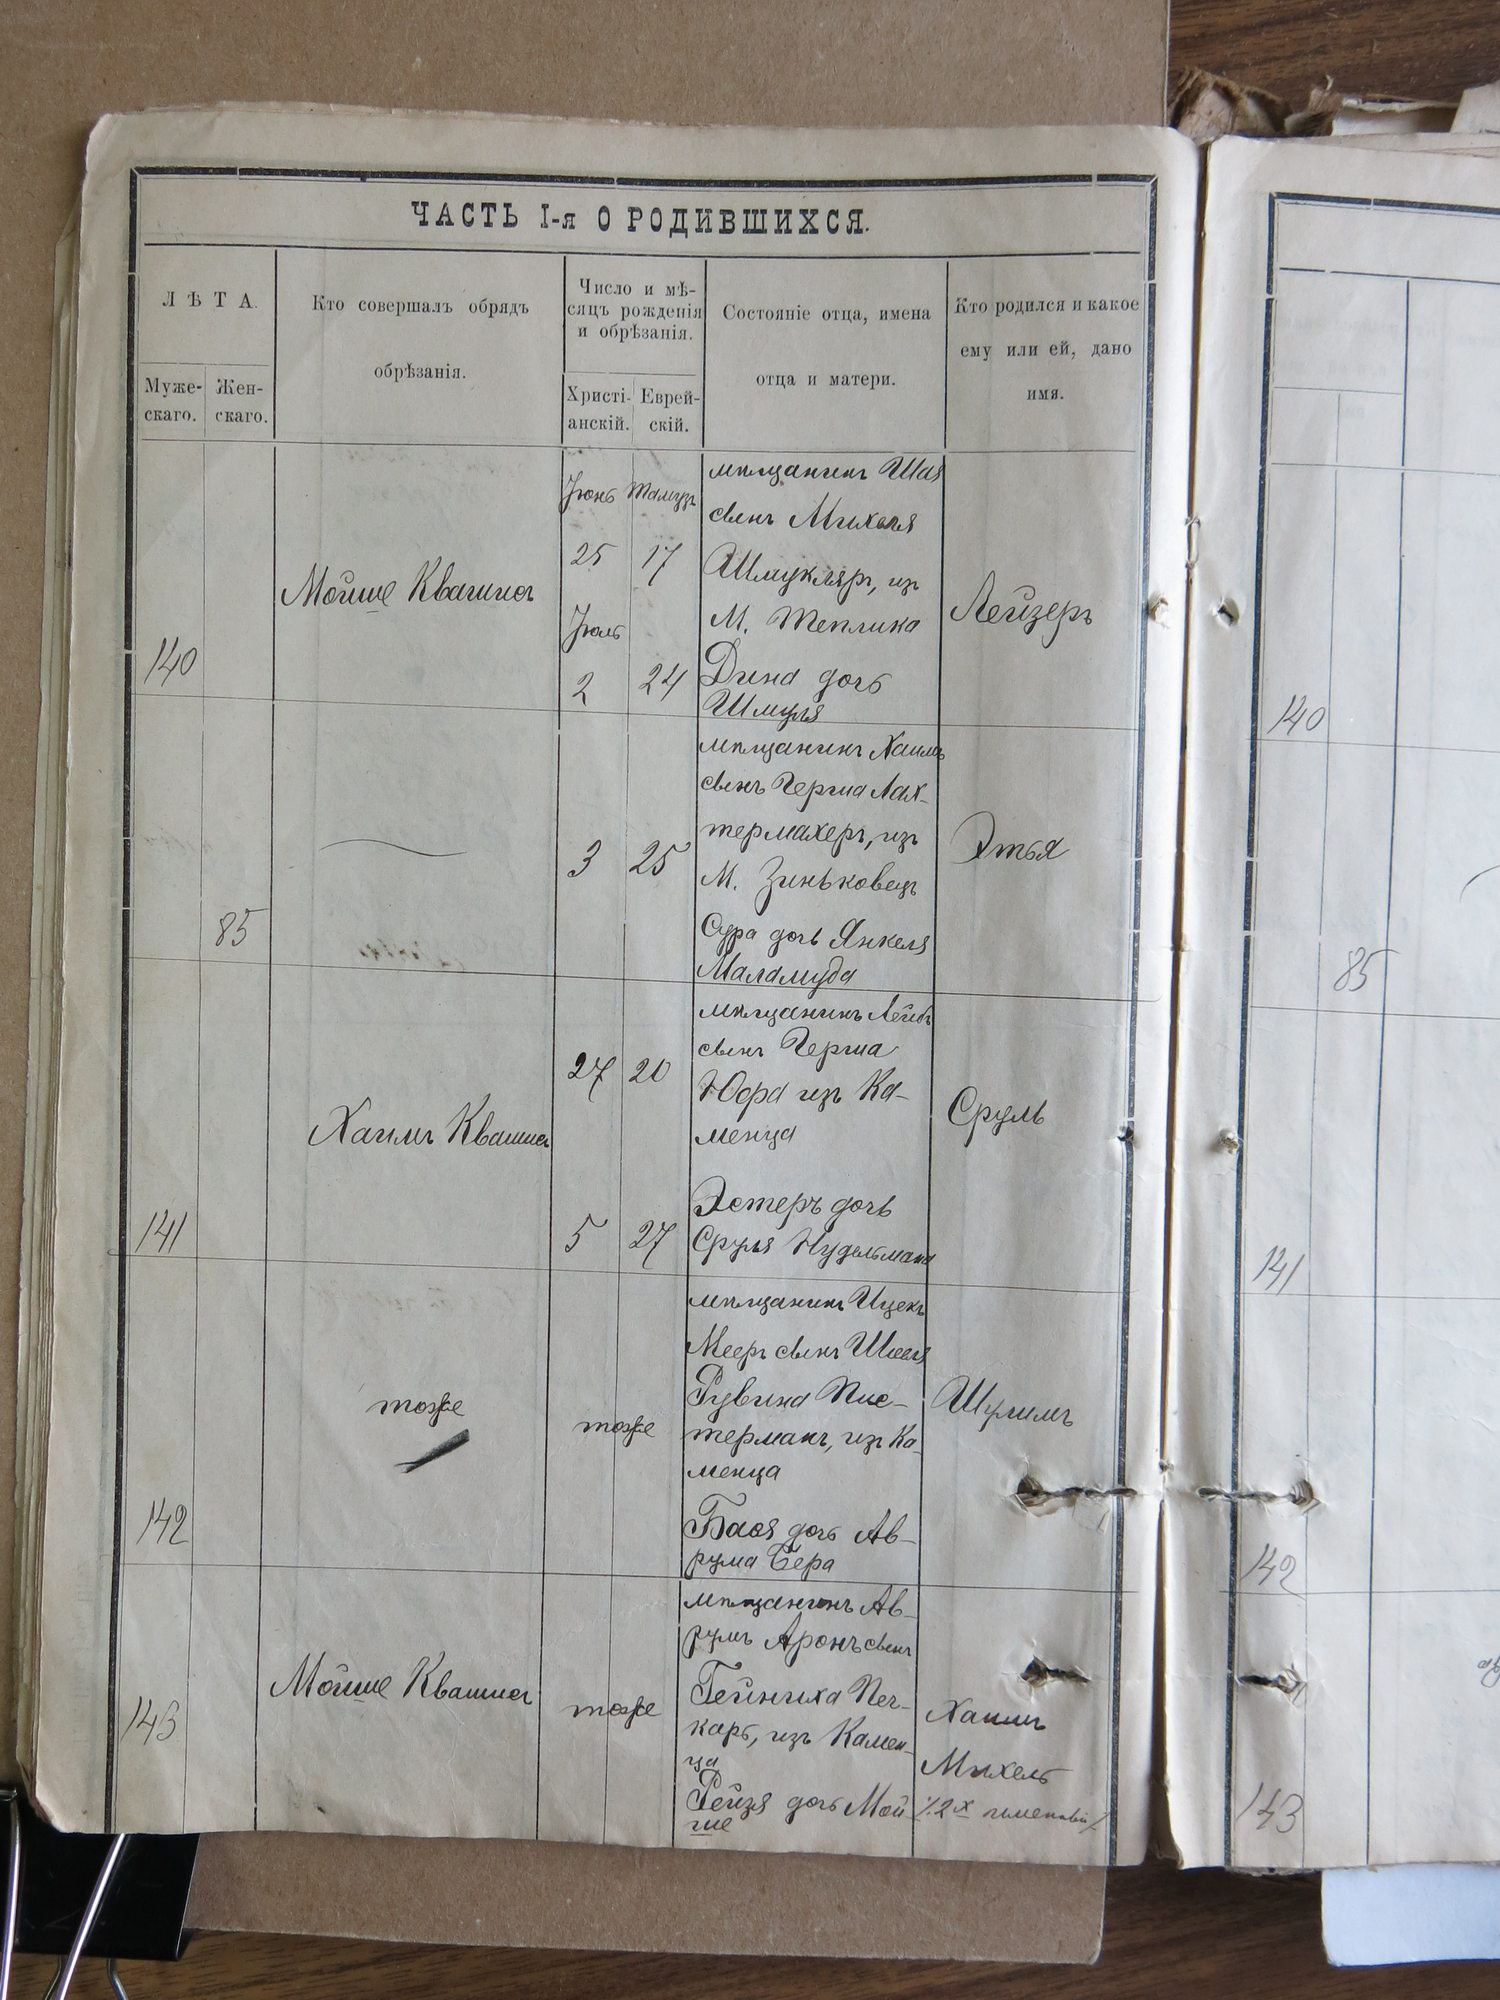 ЧАСТЬ I-я О РОДИВШИХСЯ.
ЛѢТА.
Муже-
скаго.
Жен-
скаго.
Кто совершалъ обрядъ
обрѣзанія.
Число и мѣ-
сяцъ рожденія
и обрѣзанія.
Христі-
анскій.
Еврей-
скій.
Состояніе отца, имена
отца и матери.
Кто родился и какое
ему или ей, дано
имя.
140
Мойше Квашис
Іюнь Тамузъ
25 17
Іюль
2 24
мѣщанинъ Шая
сынъ Михеля
Шмукляръ, изъ
М. Теплика
Дина дочь
Шмуля
Лейзеръ
85
3 25
мѣщанинъ Хаимъ
сынъ Герша Лах-
термахеръ, изъ
М. Зиньковецъ
Сура дочь Янкеля
Маламуда
Этья
141
Хаимъ Квашис
27 20
5 27
мѣщанинъ Лейбъ
сынъ Герша
Юфа изъ Ка-
менца
Эстеръ дочь
Сруля Нудельмана
Сруль
142
тоже
тоже
мѣщанинъ Ицекъ
Мееръ сынъ
Рувина Пис-
терманъ, изъ Ка-
менца
Бася дочь Ав-
рума Бера
Шулимъ
143
Мойше Квашис
тоже
мѣщанинъ Ав-
румъ Аронъ сынъ
Гейниха Печ-
каръ, изъ Камен-
ца
Рейзя дочь Мой
ше
Хаимъ
Михель
2х именный
140
85
141
142
143